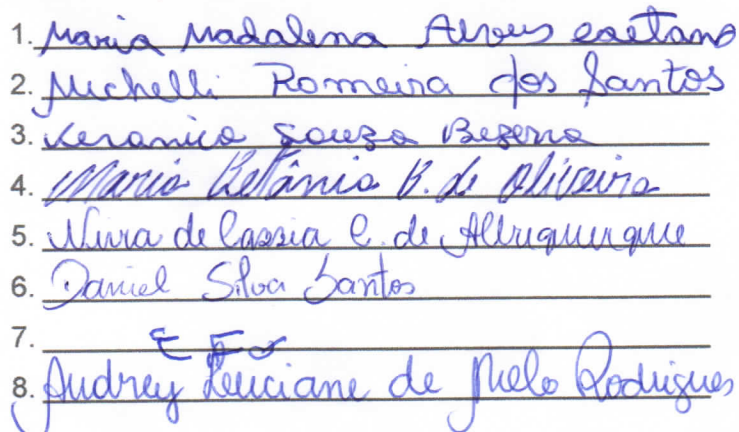 1. Maria Madalena Alves Caetano
2. Michelli Romeira dos Santos
3. Veranica Souza Bezerra
4. Maria Betânia B. de Oliveira
5. Nivra de Cassia C. de Albuquerque
6. Daniel Silva Santos
7.
8. Audrey Leuciane de Melo Rodrigues